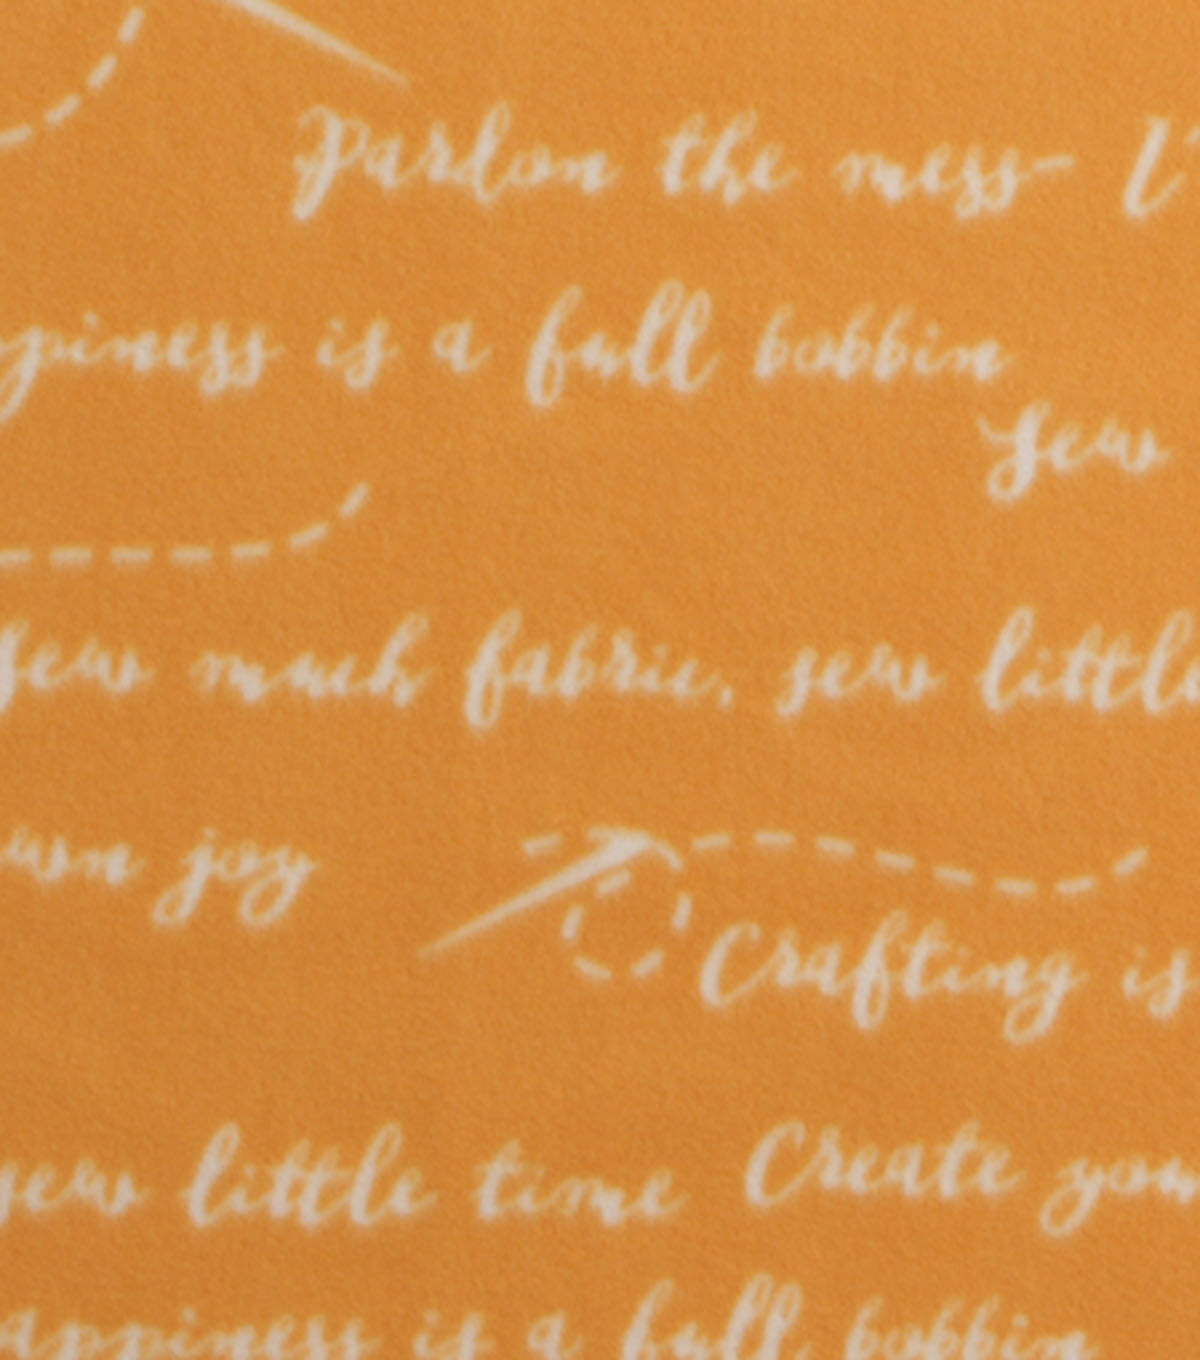 Pardon the mess- I'
ppiness is a full bobbin
Sew
Sew much fabric, sew little
own joy
Crafting is
sew little time
Create you
appiness is a full bobbin